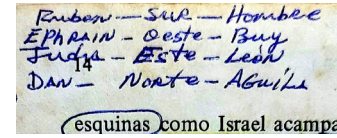 Ruben — Sur — Hombre
EPhRAIN — Oeste — Buy
Judá — Este — León
14
DAN — NORTE — AGUILA
esquinas como Israel acampa